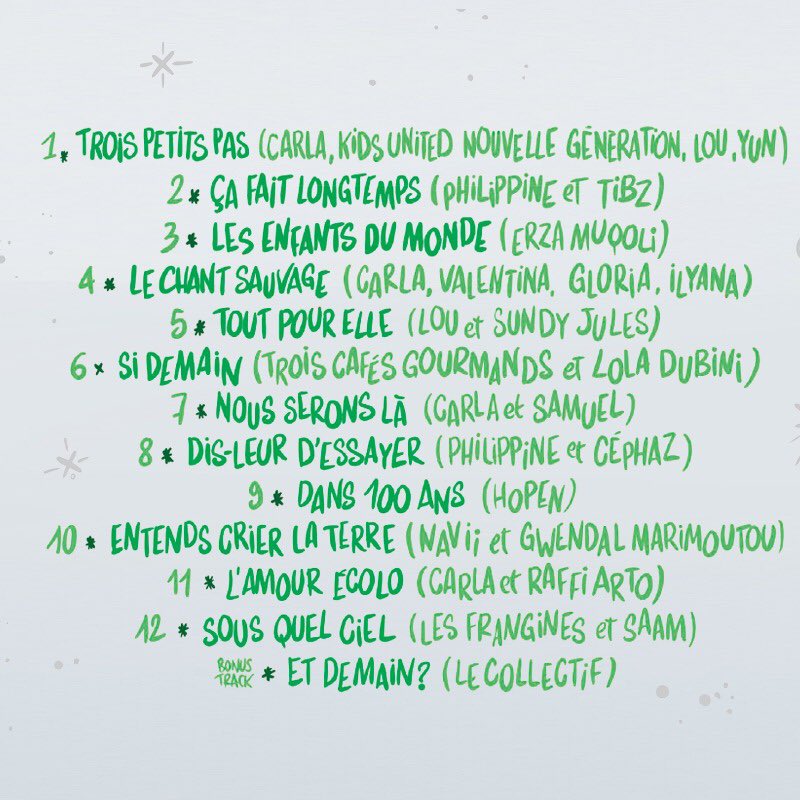 1* TROIS PETITS PAS (CARLA, KIDS UNITED NOUVELLE GÉNÉRATION, LOU, YUN)
2* ÇA FAIT LONGTEMPS (PHILIPPINE et TIBZ)
3* LES ENFANTS DU MONDE (ERZA MUQOLI)
4* LE CHANT SAUVAGE (CARLA, VALENTINA, GLORIA, ILYANA)
5* TOUT POUR ELLE (LOU et SUNDY JULES)
6* SI DEMAIN (TROIS CAFÉS GOURMANDS et LOLA DUBINI)
7* NOUS SERONS LÀ (CARLA et SAMUEL)
8* DIS-LEUR D'ESSAYER (PHILIPPINE et CÉPHAZ)
9* DANS 100 ANS (HOPEN)
10* ENTENDS CRIER LA TERRE (NAVII et GWENDAL MARIMOUTOU)
11* L'AMOUR ÉCOLO (CARLA et RAFFI ARTO)
12* SOUS QUEL CIEL (LES FRANGINES et SAAM)
BONUS TRACK* ET DEMAIN? (LE COLLECTIF)